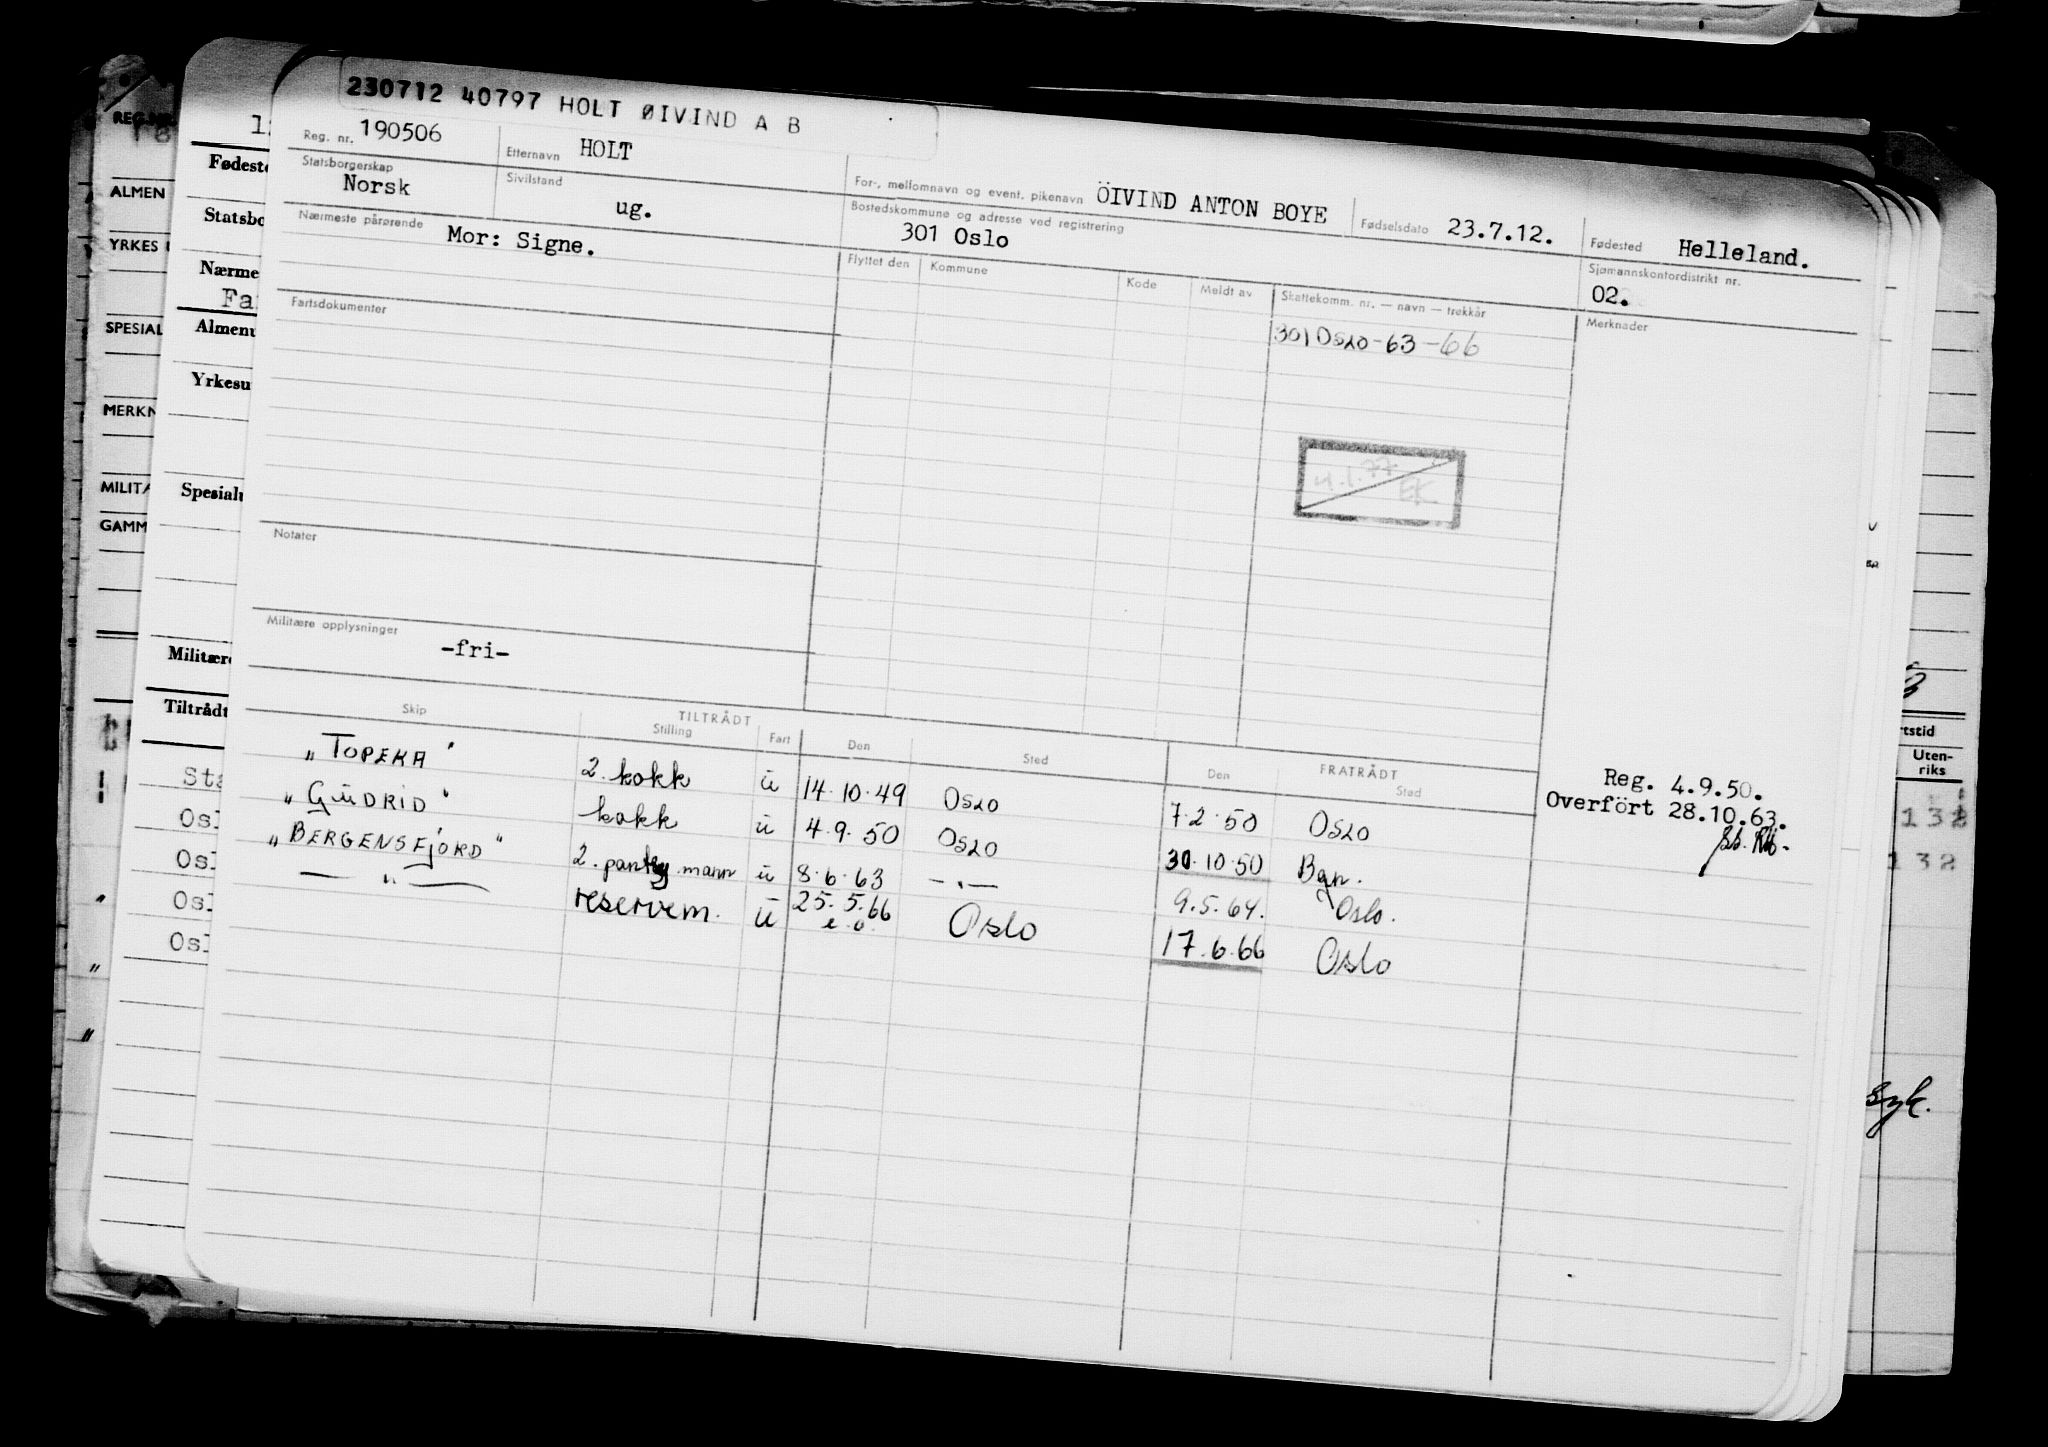 230712 40797 HOLT ØIVIND A B
Reg. nr. 190506 Etternavn HOLT For-, mellomnavn og event. pikenavn ÖIVIND ANTON BOYE Fødselsdato 23.7.12. Fødested Helleland.
Statsborgerskap Norsk Sivilstand ug. Bostedskommune og adresse ved registrering 301 Oslo Sjømannskontordistrikt nr. 02.
Nærmeste pårørende Mor: Signe.
Flyttet den Kommune Kode Meldt av Skattekomm. nr. — navn — trekkår Merknader
301 OSLO-63-66
Fartsdokumenter
4.1.77 EK
Notater
Militære opplysninger
-fri-
TILTRÅDT FRATRÅDT
Skip Stilling Fart Den Sted Den Sted
"TOPEKA" 2. kokk u 14.10.49 OSLO 7.2.50 OSLO
"GUDRID" kokk u 4.9.50 OSLO 30.10.50 Bgn.
"BERGENSFJORD" 2. pantry mann u 8.6.63 — " — 9.5.64. Oslo.
— " — reservem. u 25.5.66 Oslo 17.6.66 Oslo
e.o.
Reg. 4.9.50.
Overfört 28.10.63.
REG.NR.
ALMEN
YRKES
SPESIAL
MERKN
MILITÆ
GAMM
Fødeste
Statsbo
Nærme
Fa
Almenu
Yrkesu
Spesialu
Militære
Tiltrådt
Sta
Osl
Osl
Osl
Osl
rtstid
Uten-
riks
132
132